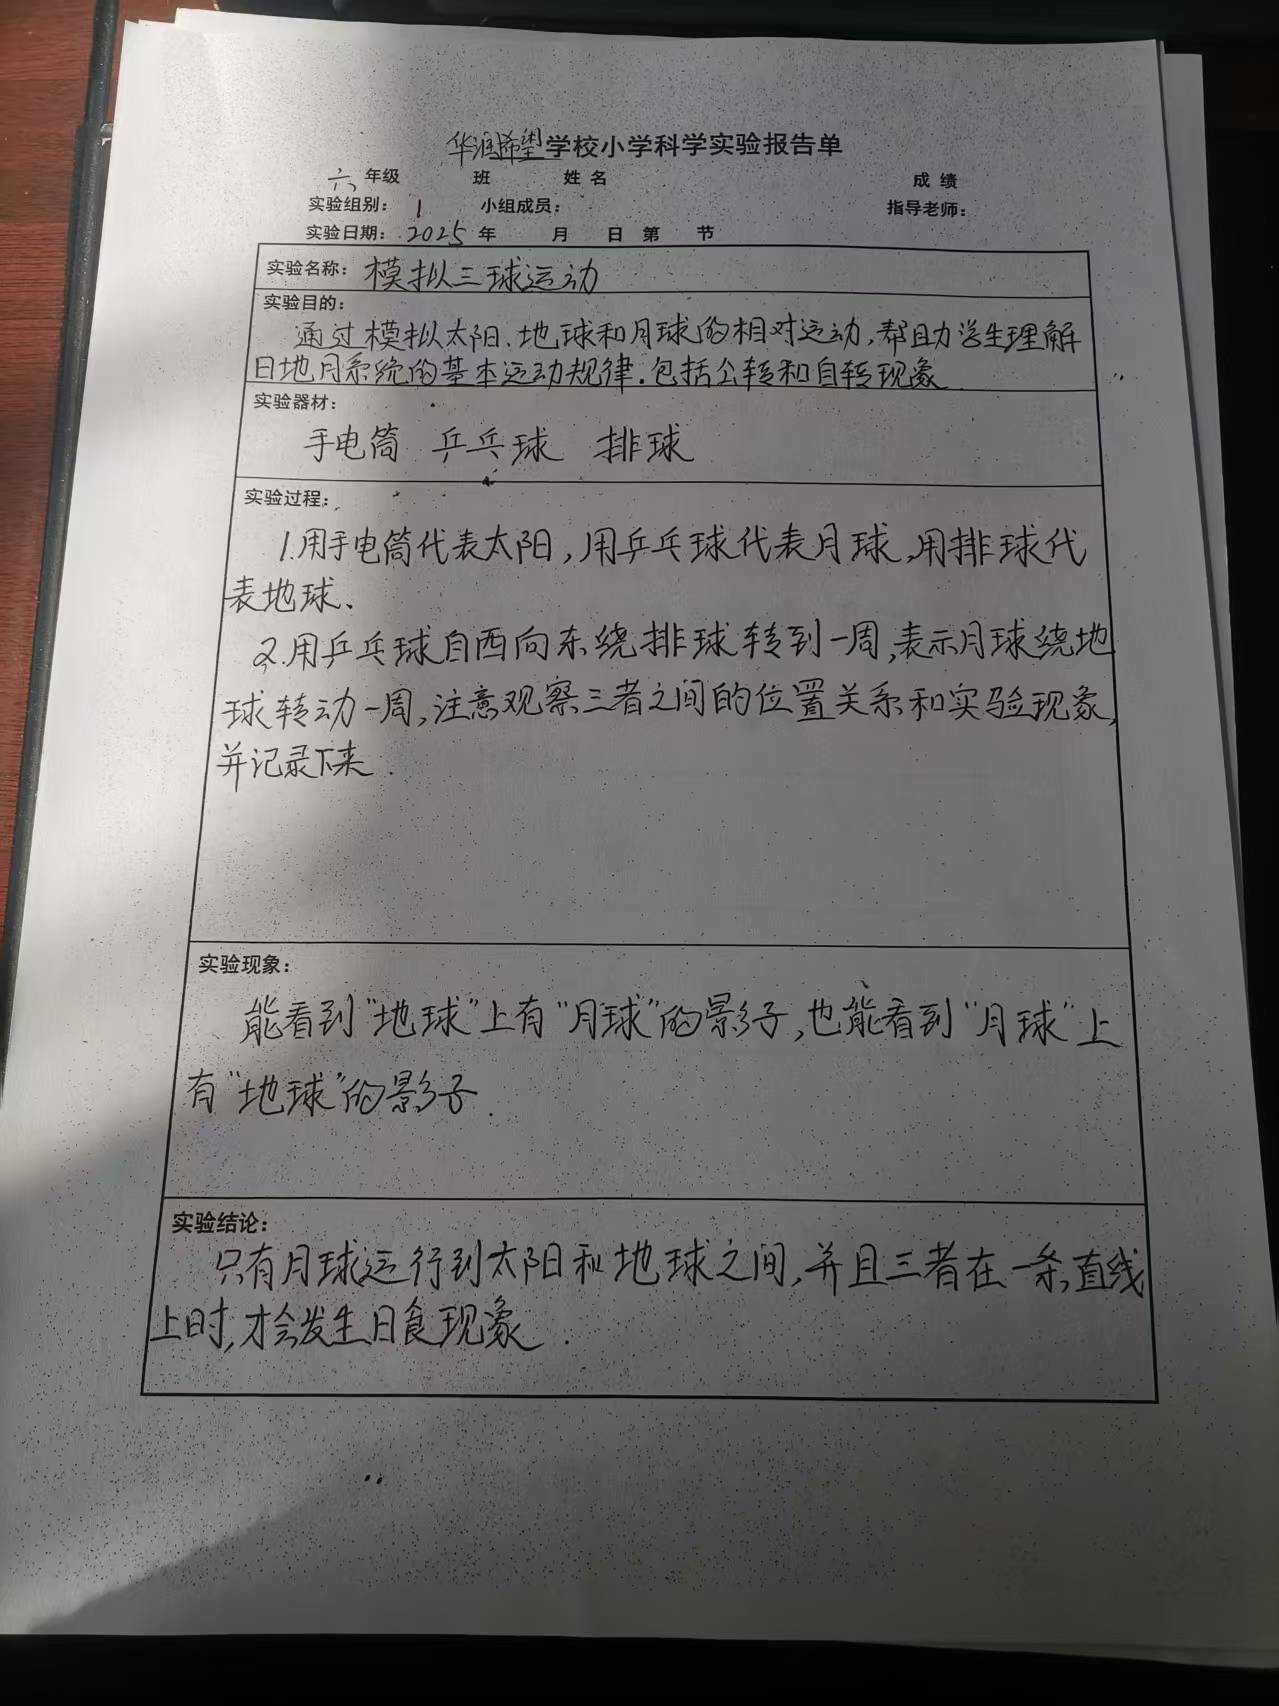 华润希望学校小学科学实验报告单
六年级 班 姓名 成绩
实验组别: 1 小组成员: 指导老师:
实验日期: 2025年 月 日 第 节
实验名称: 模拟三球运动
实验目的:
通过模拟太阳、地球和月球的相对运动,帮助学生理解
日地月系统的基本运动规律.包括公转和自转现象
实验器材:
手电筒 乒乓球 排球
实验过程:
1.用手电筒代表太阳,用乒乓球代表月球,用排球代
表地球.
2.用乒乓球自西向东绕排球转到一周,表示月球绕地
球转动一周,注意观察三者之间的位置关系和实验现象,
并记录下来.
实验现象:
能看到“地球”上有“月球”的影子,也能看到“月球”上
有“地球”的影子.
实验结论:
只有月球运行到太阳和地球之间,并且三者在一条直线
上时,才会发生日食现象.